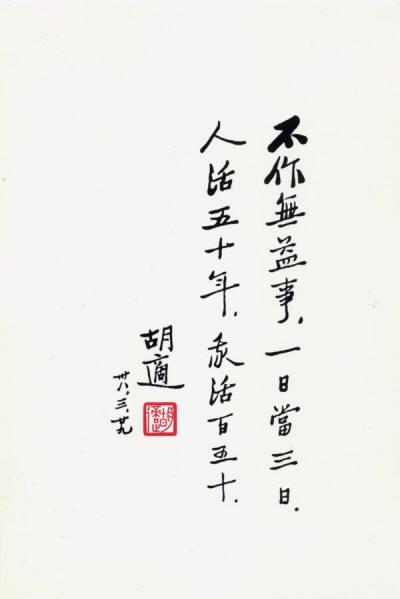 不作無益事，一日當三日．
人活五十年，我活百五十．
胡適
卅八．三．廿九
胡適